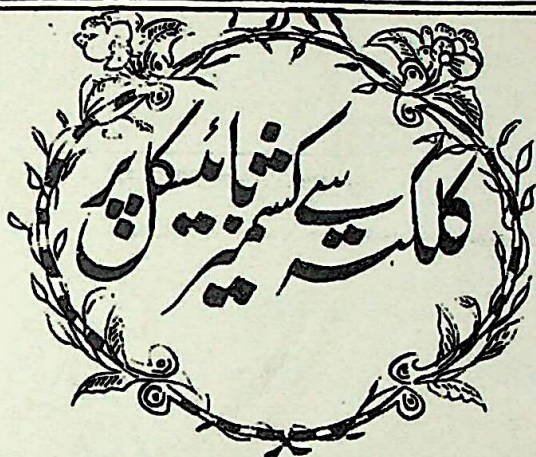 کلکتہ سے کشمیر بائیسکل پر